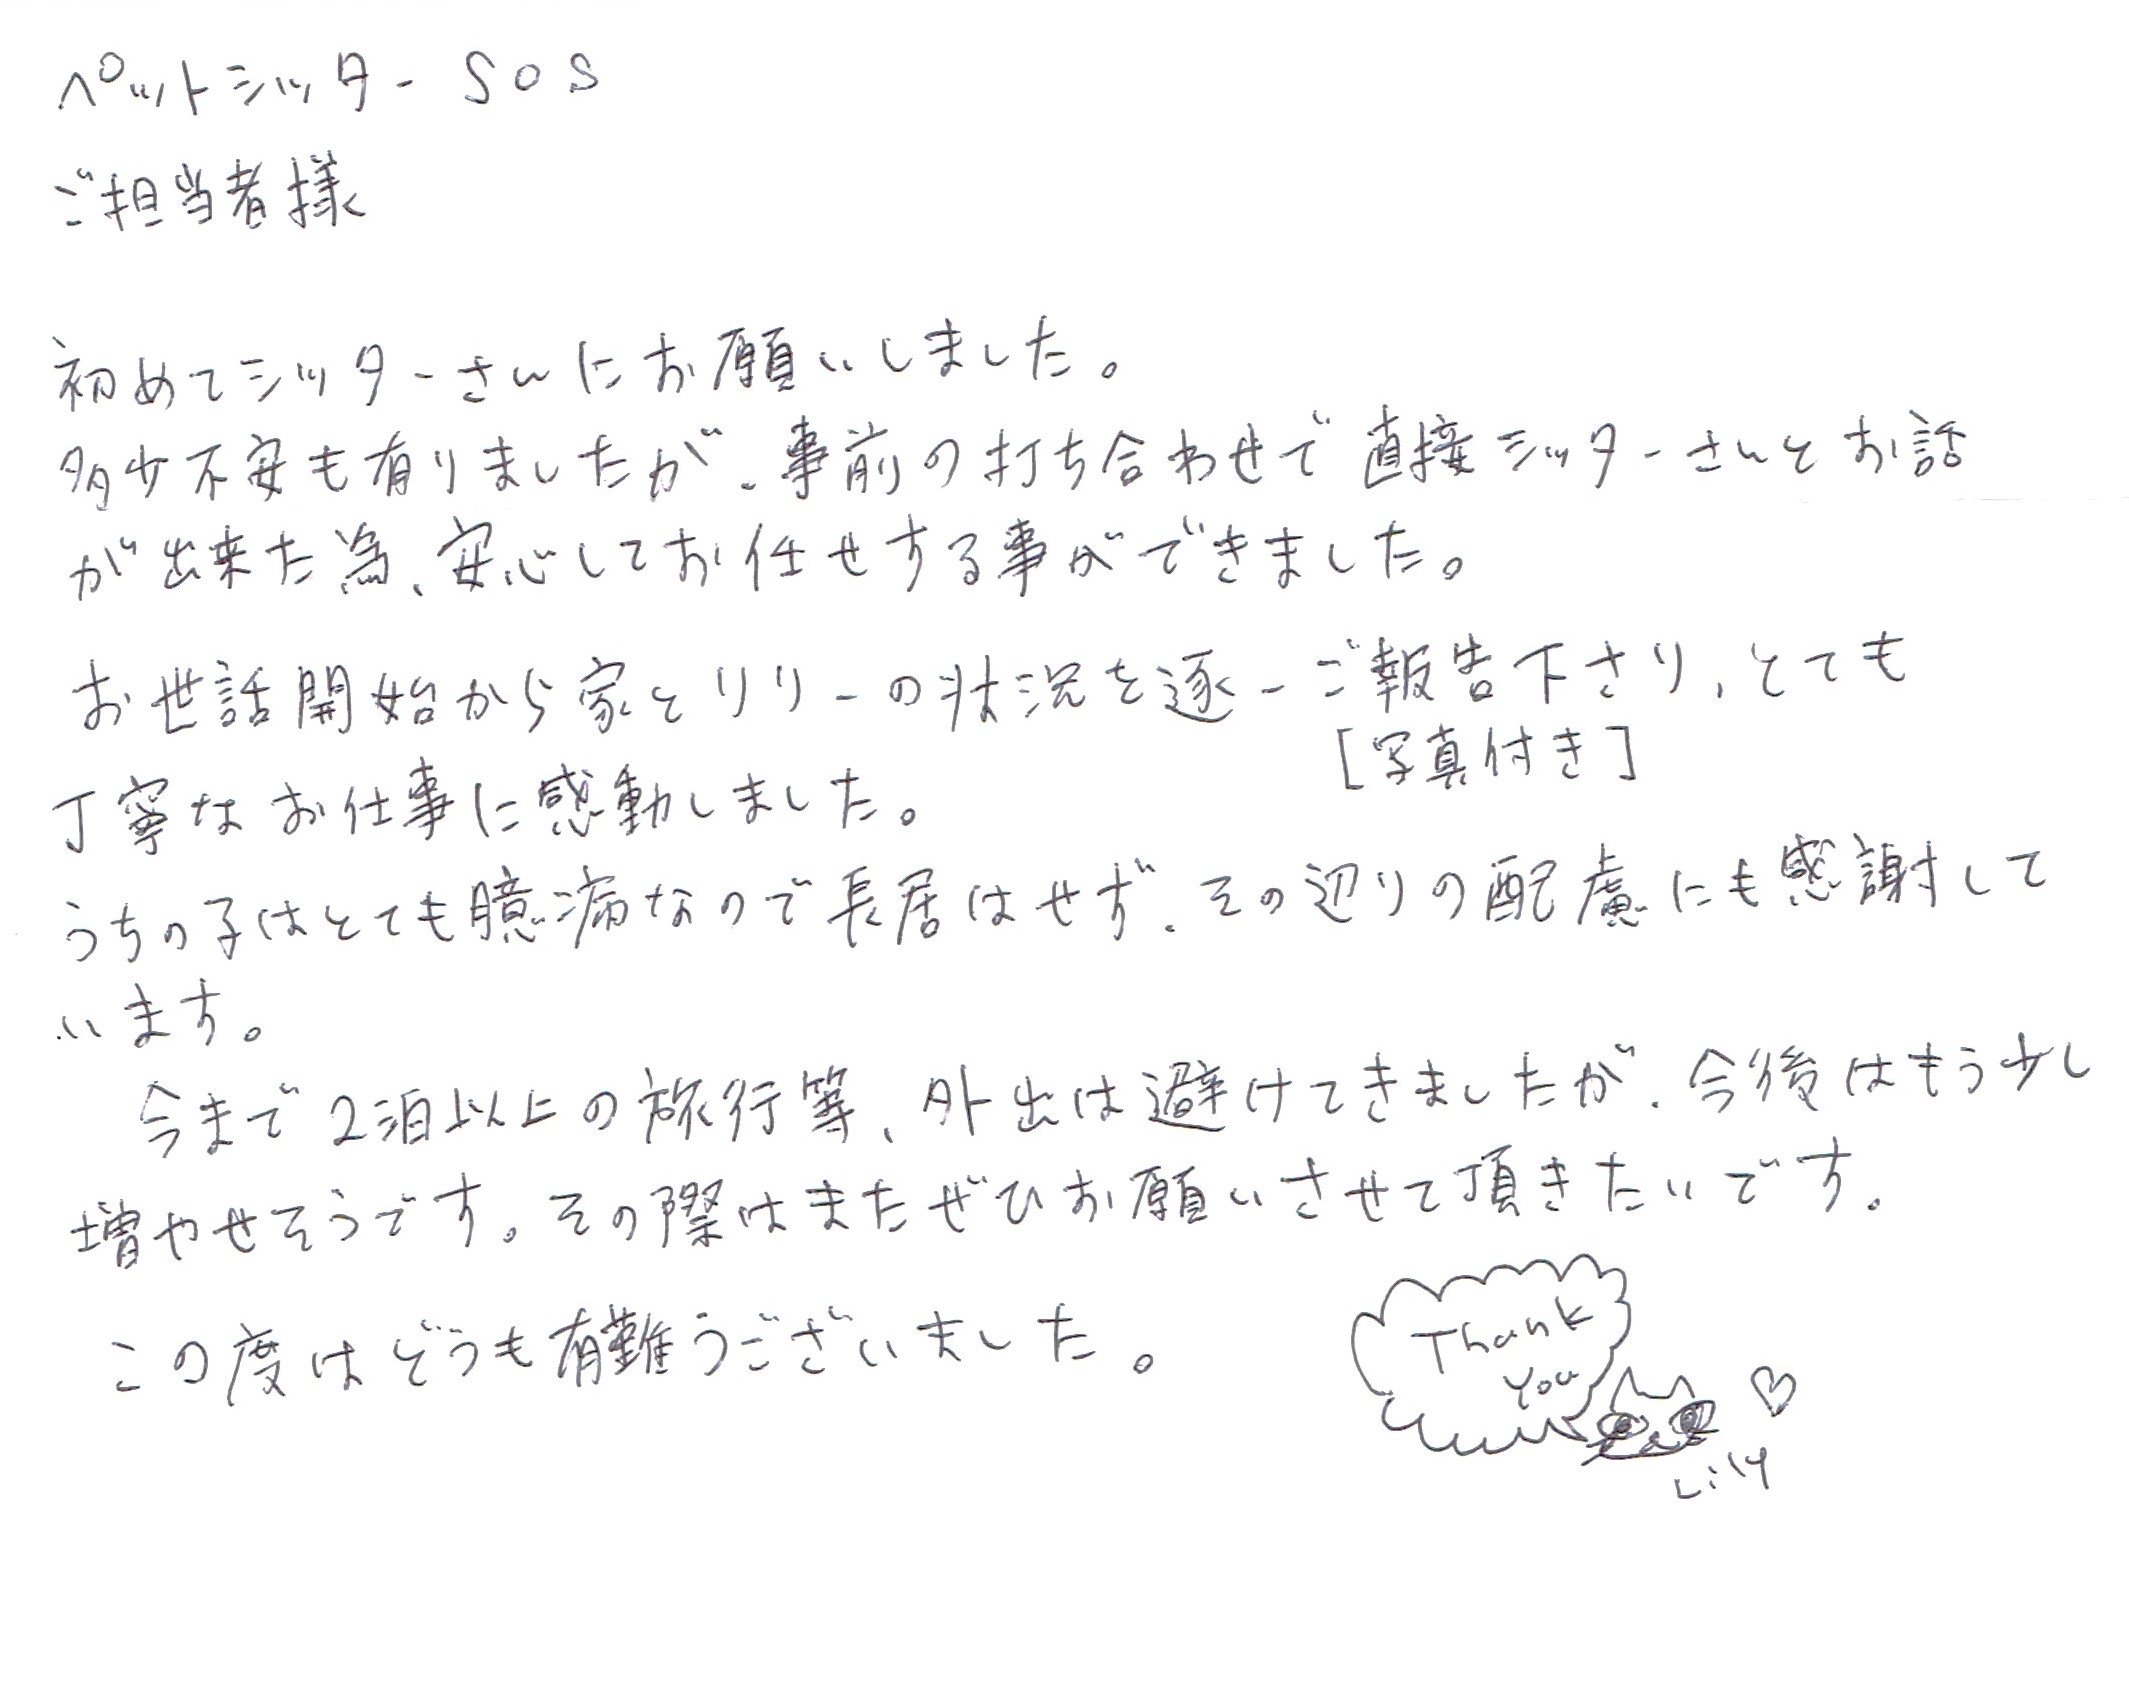 ペットシッターSOS
ご担当者様
初めてシッターさんにお願いしました。
多少不安も有りましたが、事前の打ち合わせで直接シッターさんとお話
が出来た為、安心してお任せする事ができました。
お世話開始から家とリリーの状況を逐一ご報告下さり、とても
[写真付き]
丁寧なお仕事に感動しました。
うちの子はとても臆病なので長居はせず、その辺りの配慮にも感謝して
います。
今まで2泊以上の旅行等、外出は避けてきましたが、今後はもう少し
増やせそうです。その際はまたぜひお願いさせて頂きたいです。
この度はどうも有難うございました。
Thank
You
Lily